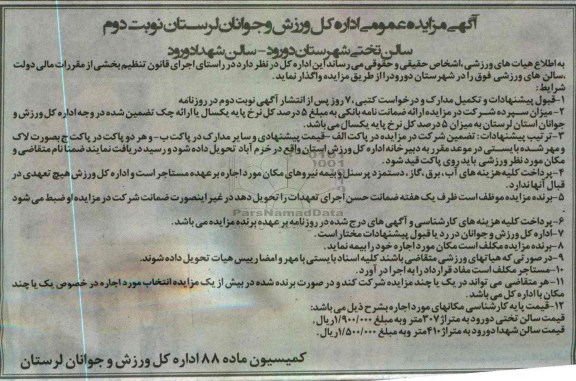 آگهی مزایده عمومی اداره کل ورزش و جوانان لرستان نوبت دوم
سالن تختی شهرستان دورود - سالن شهدا دورود
به اطلاع هیات های ورزشی، اشخاص حقیقی و حقوقی می رساند این اداره کل در نظر دارد در راستای اجرای قانون تنظیم بخشی از مقررات مالی دولت
،سالن های ورزشی فوق را در شهرستان دورود را از طریق مزایده واگذار نماید.
شرایط:
۱-قبول پیشنهادات و تکمیل مدارک و درخواست کتبی، ۷ روز پس از انتشار آگهی نوبت دوم در روزنامه
۲- میزان سپرده شرکت در مزایده ارائه ضمانت نامه بانکی به مبلغ ۵ درصد کل نرخ پایه یکسال یا ارائه چک تضمین شده در وجه اداره کل ورزش و
جوانان استان لرستان به میزان ۵ درصد کل نرخ پایه یکسال می باشد.
۳- ترتیب پیشنهادات: تضمین شرکت در مزایده در پاکت الف - قیمت پیشنهادی و سایر مدارک در پاکت ب- و هر دو پاکت در پاکت ج بصورت لاک
و مهر شده بایستی در موعد مقرر به دبیرخانه اداره کل ورزش استان واقع در خرم آباد تحویل داده شود و رسید دریافت نمایند ضمنا نام متقاضی و
مکان مورد نظر ورزشی باید روی پاکت قید شود.
۴- پرداخت کلیه هزینه های آب، برق، گاز، دستمزد پرسنل و بیمه نیروهای مکان مورد اجاره بر عهده مستاجر است و اداره کل ورزش هیچ تعهدی در
قبال آنها ندارد.
۵- برنده مزایده موظف است ظرف یک هفته ضمانت حسن اجرای تعهدات را تحویل دهد در غیر اینصورت ضمانت شرکت در مزایده او ضبط می شود
.
۶- پرداخت کلیه هزینه های کارشناسی و آگهی های درج شده در روزنامه بر عهده برنده مزایده می باشد.
۷- اداره کل ورزش و جوانان در رد یا قبول پیشنهادات مختار است.
۸- برنده مزایده مکلف است مکان مورد اجاره خود را بیمه نماید.
۹- در صورتی که هیاتهای ورزشی متقاضی باشند کلیه اسناد بایستی با مهر و امضا رییس هیات تحویل داده شوند.
۱۰- مستاجر مکلف است مفاد قرارداد را به اجرا در آورد.
۱۱- هر متقاضی می تواند در یک یا چند مزایده شرکت کند و در صورت برنده شده در بیش از یک مزایده انتخاب مورد اجاره در خصوص یک یا چند
مکان با اداره کل می باشد.
۱۲- قیمت پایه کارشناسی مکانهای مورد اجاره بشرح ذیل می باشد:
قیمت سالن تختی دورود به متراژ ۳۰۷ متر و به مبلغ ۱/۹۰۰/۰۰۰ ریال.
قیمت سالن شهدا دورود به متراژ ۴۱۰ متر و به مبلغ ۱/۵۰۰/۰۰۰ ریال.
کمیسیون ماده ۸۸ اداره کل ورزش و جوانان لرستان
ParsNamadData